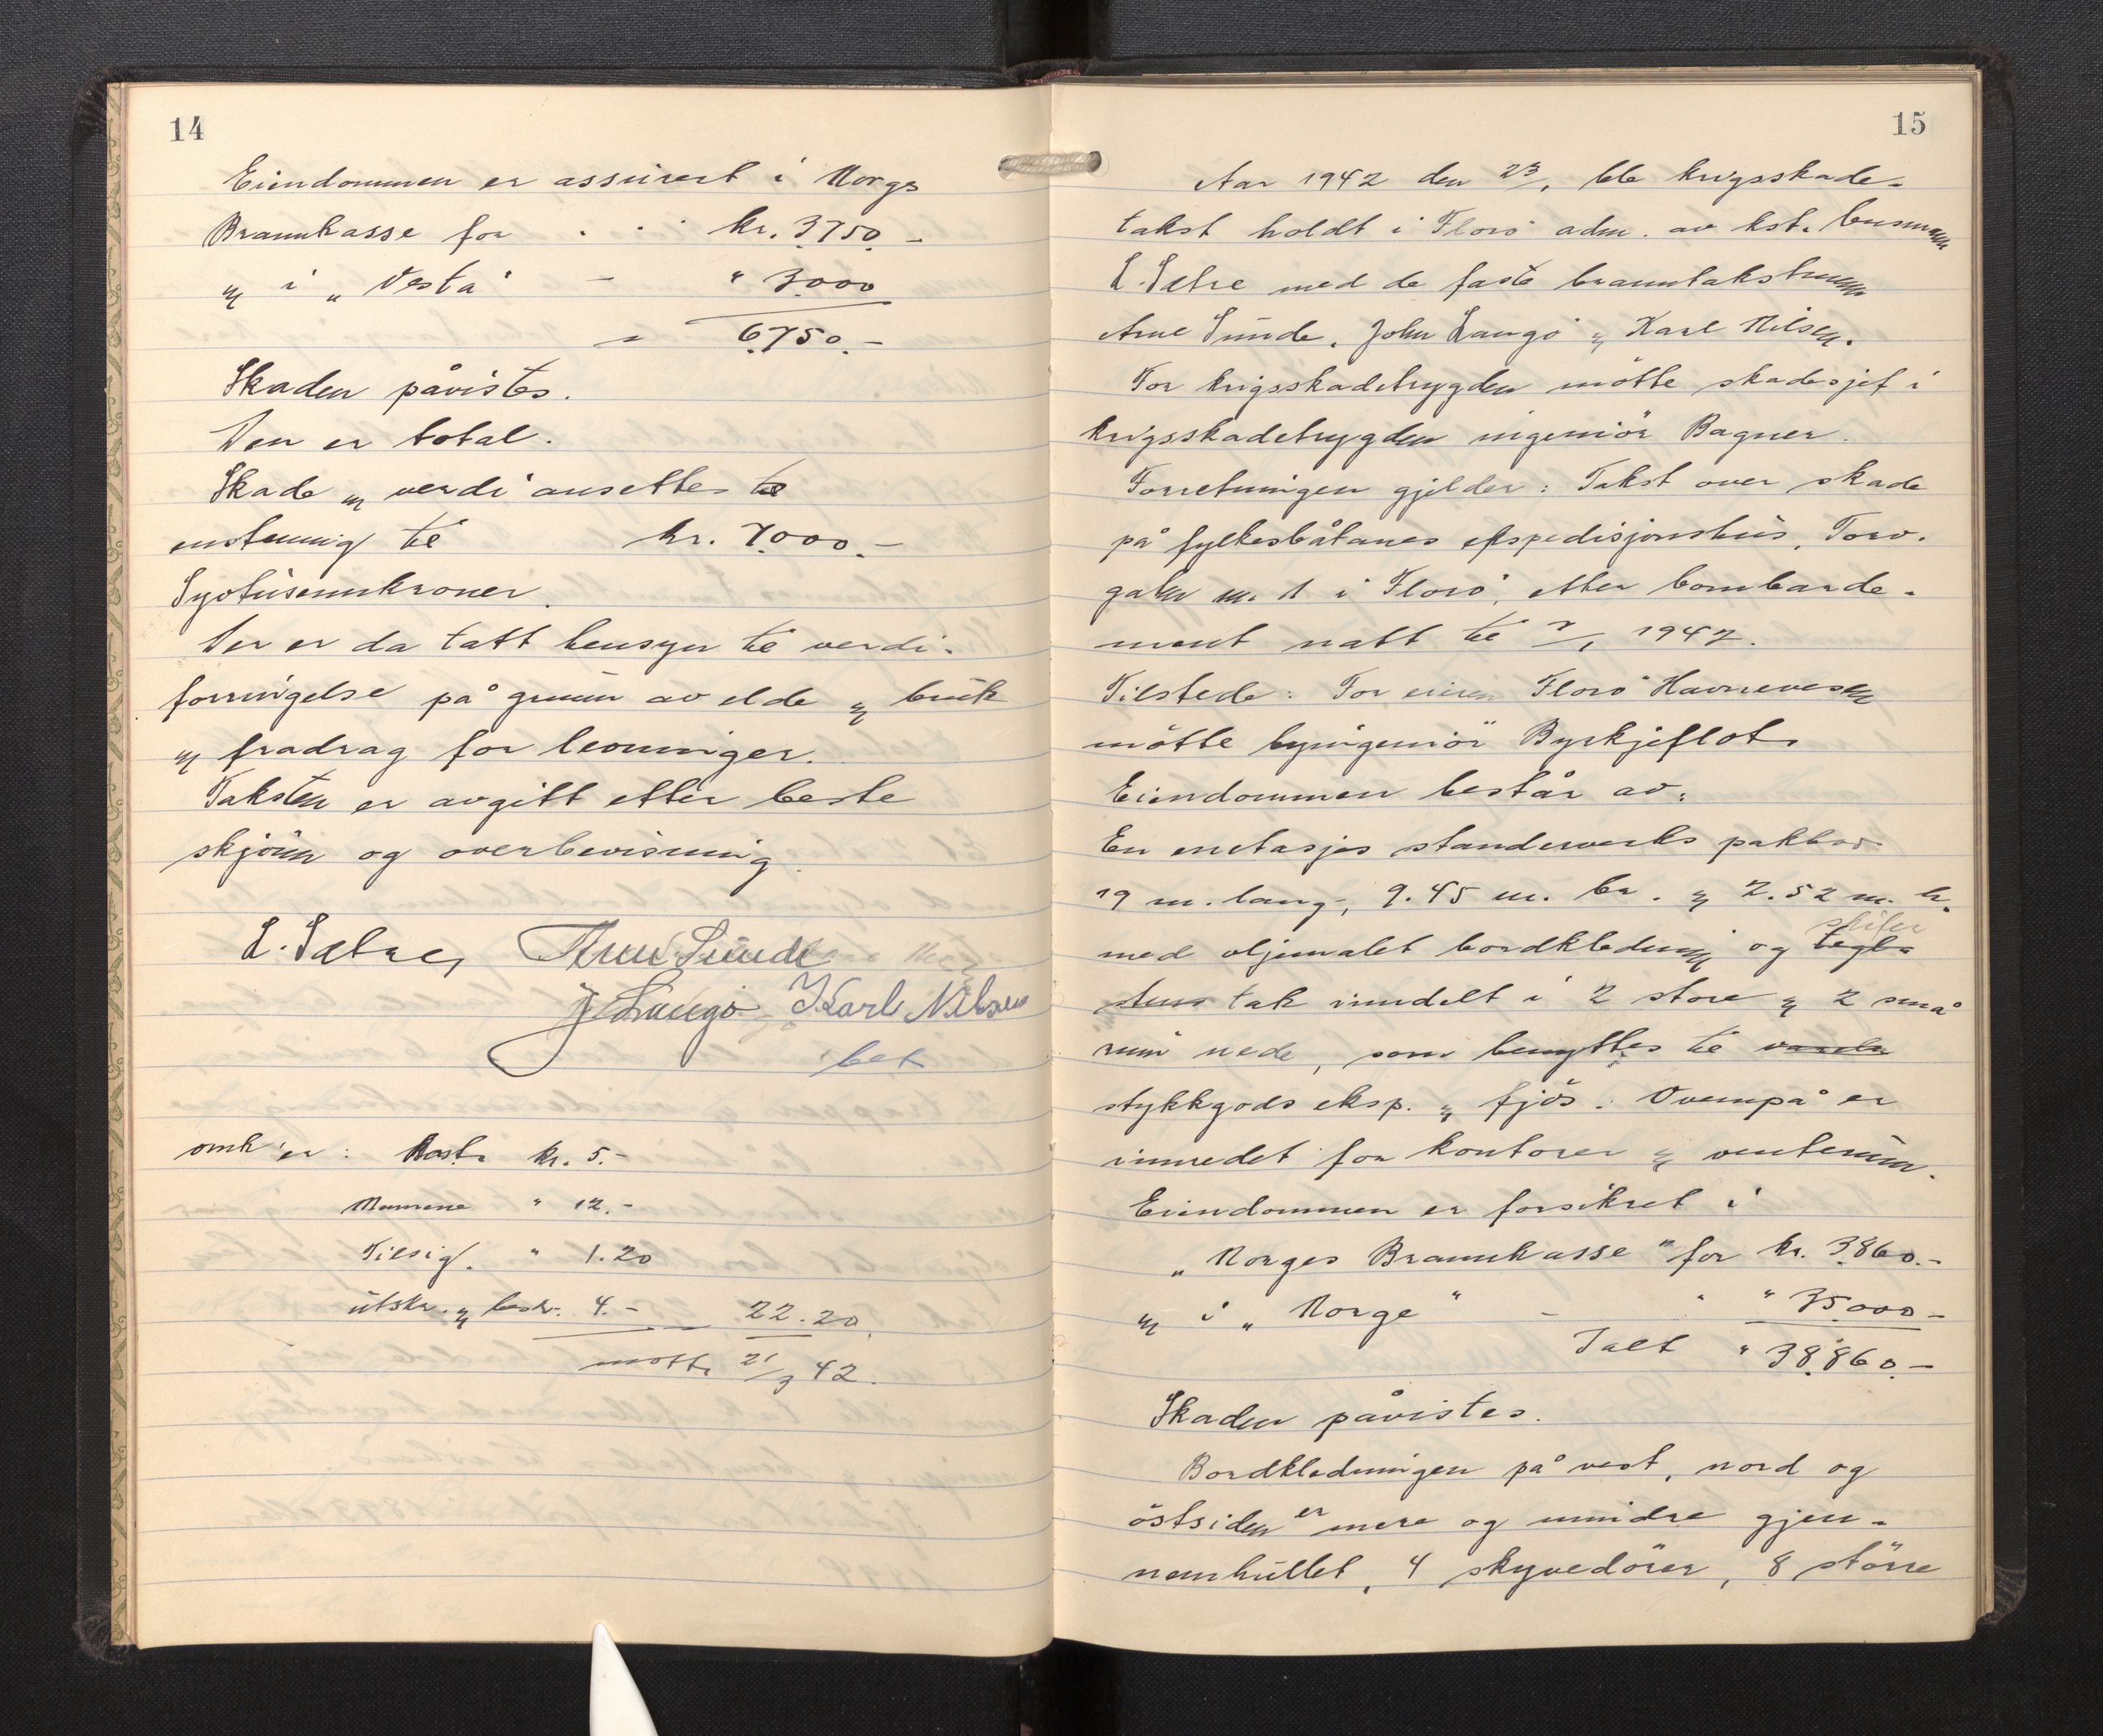 14
Eiendommen er assurert i Norges
Brannkasse for . . . kr. 3750.-
og i „Vesta" - " 3000
= 6750.-
Skaden påvistes.
Den er total.
Skade og verdi ansettes til
enstemmig til kr. 7000.-
Syvtusenkroner.
Der er da tatt hensyn til verdi-
forringelse på grunn av elde og bruk
og fradrag for levninger.
Taksten er avgitt etter beste
skjönn og overbevisning.
L. Sætre, Arne Sunde
J Langö Karl Nilsen
bet
omk'er: Kost. kr. 5.-
Mennene " 12.-
Tilsig. " 1.20
utskr. og beskr. 4.- 22.20
mott. 21/3 42.
15
Aar 1942 den 23/1 ble krigsskade-
takst holdt i Florö adm. av kst. lensmann
L. Sætre med de faste branntakstmenn
Arne Sunde, John Langö og Karl Nilsen.
For krigsskadetrygden mötte skadesjef i
krigsskadetrygden ingeniör Bagner.
Forretningen gjelder: Takst over skade
på fylkesbåtanes ekspedisjonshus, Torv-
gaten nr. 1 i Florö, etter bombarde-
ment natt til 7/1 1942.
Tilstede: For eieren Florö Havnevesen
mötte byingeniör Byrkjeflot.
Eiendommen består av:
En enetasjes standerverks pakkbod
19 m. lang, 9.45 m. br. og 2.52 m. h.
skifer
med oljemalet bordkledning og tegl-
stens tak inndelt i 2 store og 2 små
rum nede, som benyttes til
stykkgods eksp. og fjös. Ovenpå er
innredet for kontorer og venterum.
Eiendommen er forsikret i
„Norges Brannkasse" for kr. 3860.-
og i „Norge" - " " 35000-
Ialt " 38.860.-
Skaden påvistes.
Bordkledningen på vest, nord og
östsiden er mere og mindre gjen-
nemhullet, 4 skyvedörer, 8 större